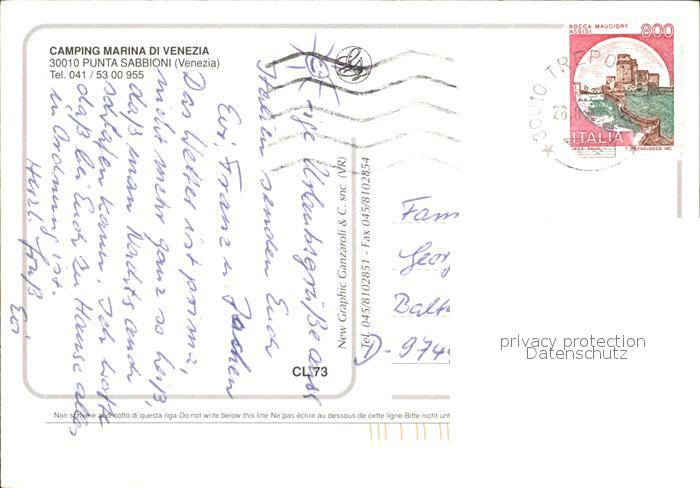 CAMPING MARINA DI VENEZIA
30010 PUNTA SABBIONI (Venezia)
Tel. 041 / 53 00 955
ige Urlaubsgrüße aus
Italien senden Euch
Evi, Franz u.
Das Wetter ist prima,
nicht mehr ganz so heiß,
daß man Nachts auch
schlafen kann. Ich hoffe
daß bei Euch zu Hause alles
in Ordnung ist.
Herzl. Gruß
Evi
CL 73
New Graphic Ganzaroli & C. snc (VR)
Tel. 045/8102851 - Fax 045/8102854
Fam
Geor
Balt
D - 974
ROCCA MAGGIORE
ASSISI
800
ITALIA
30010 TREPO
privacy protection
Datenschutz
Non scrivere al di sotto di questa riga-Do not write below this line-Ne pas écrire au dessous de cette ligne-Bitte nicht unt